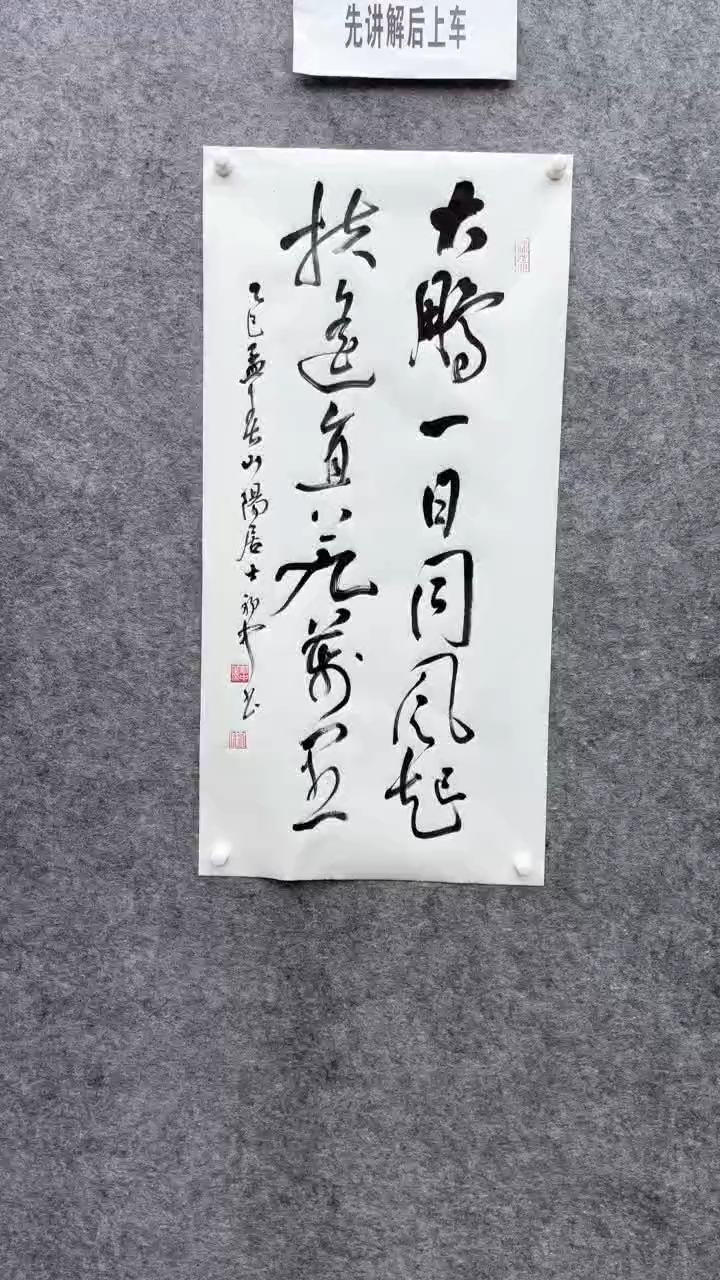 先讲解后上车
大鵬一日同风起
扶遥直上九萬里
乙巳孟春山陽居士书